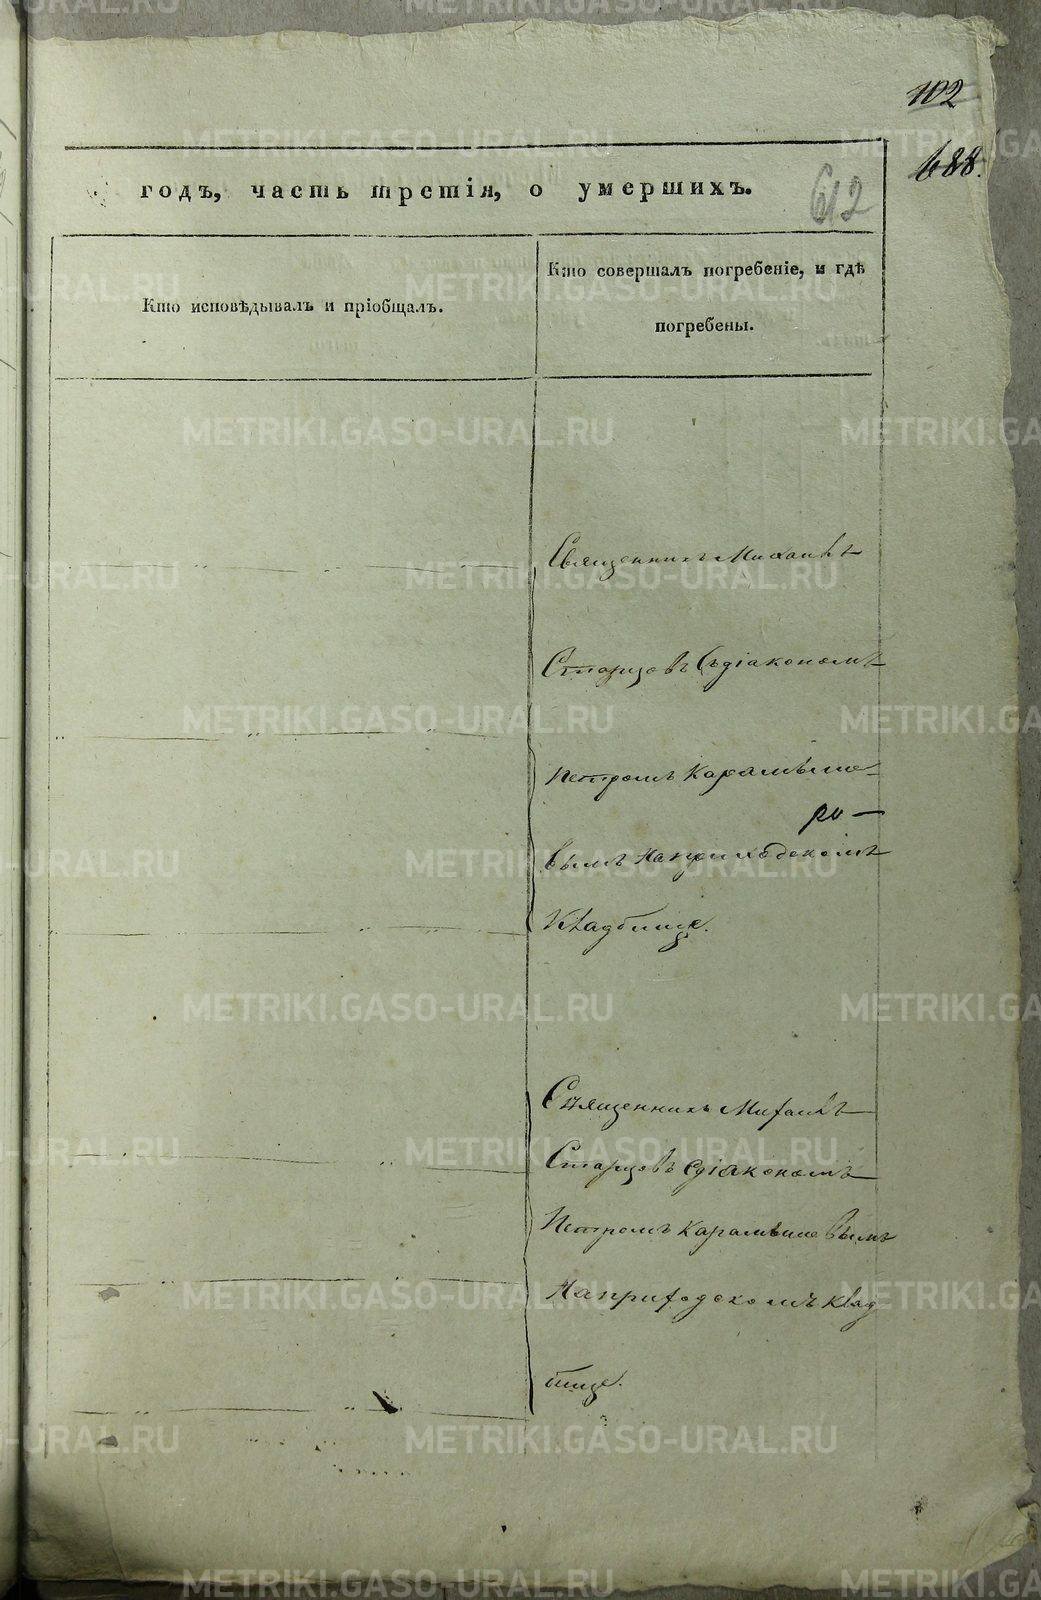 102
688.
612
годъ, часть третія, о умершихъ.
Кто исповѣдывалъ и пріобщалъ.
Кто совершалъ погребеніе, и гдѣ
погребены.
Священникъ Михаилъ
Старцовъ Съдіакономъ
Петромъ Карамыше-
вымъ Наприходскомъ
Кладбище.
Священникъ Михаилъ
Старцовъ Сдіакономъ
Петромъ Карамышевымъ
Наприходскомъ клад
бище.
METRIKI.GASO-URAL.RU